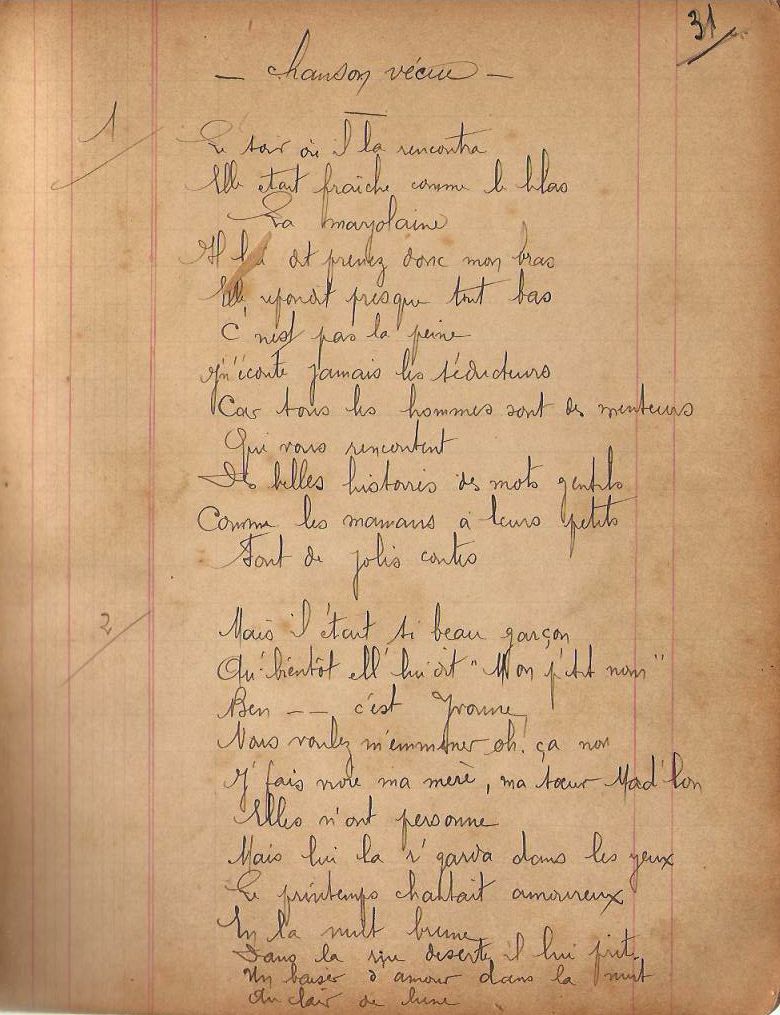 31
— Chanson vécue —
1
Le soir où il la rencontra
Elle était fraîche comme le lilas
La marjolaine
Il lui dit prenez donc mon bras
Elle répondit presque tout bas
C'n'est pas la peine
J'n'écoute jamais les séducteurs
Car tous les hommes sont des menteurs
Qui vous rencontent
Des belles histoires des mots gentils
Comme les mamans à leurs petits
Font de jolis contes
2
Mais il était si beau garçon
Qu'bientôt ell' lui dit "Mon p'tit nom"
Ben —— c'est Yvonne
Vous voulez m'emmener oh! ça non
J'fais vivre ma mère, ma sœur Mad'lon
Elles n'ont personne
Mais lui la r'garda dans les yeux
Le printemps chantait amoureux
En la nuit brune
Dans la rue déserte il lui prit
Un baiser d'amour dans la nuit
Au clair de lune